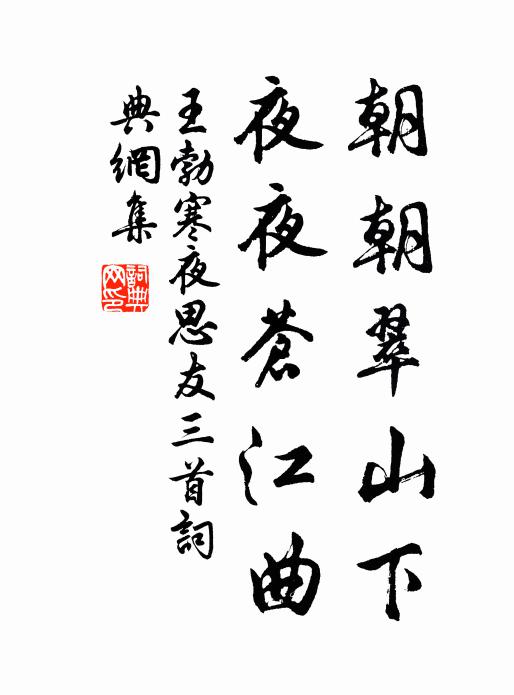 朝朝翠山下
夜夜蒼江曲
王勃寒夜思友三首詞
典網集
詞典网印